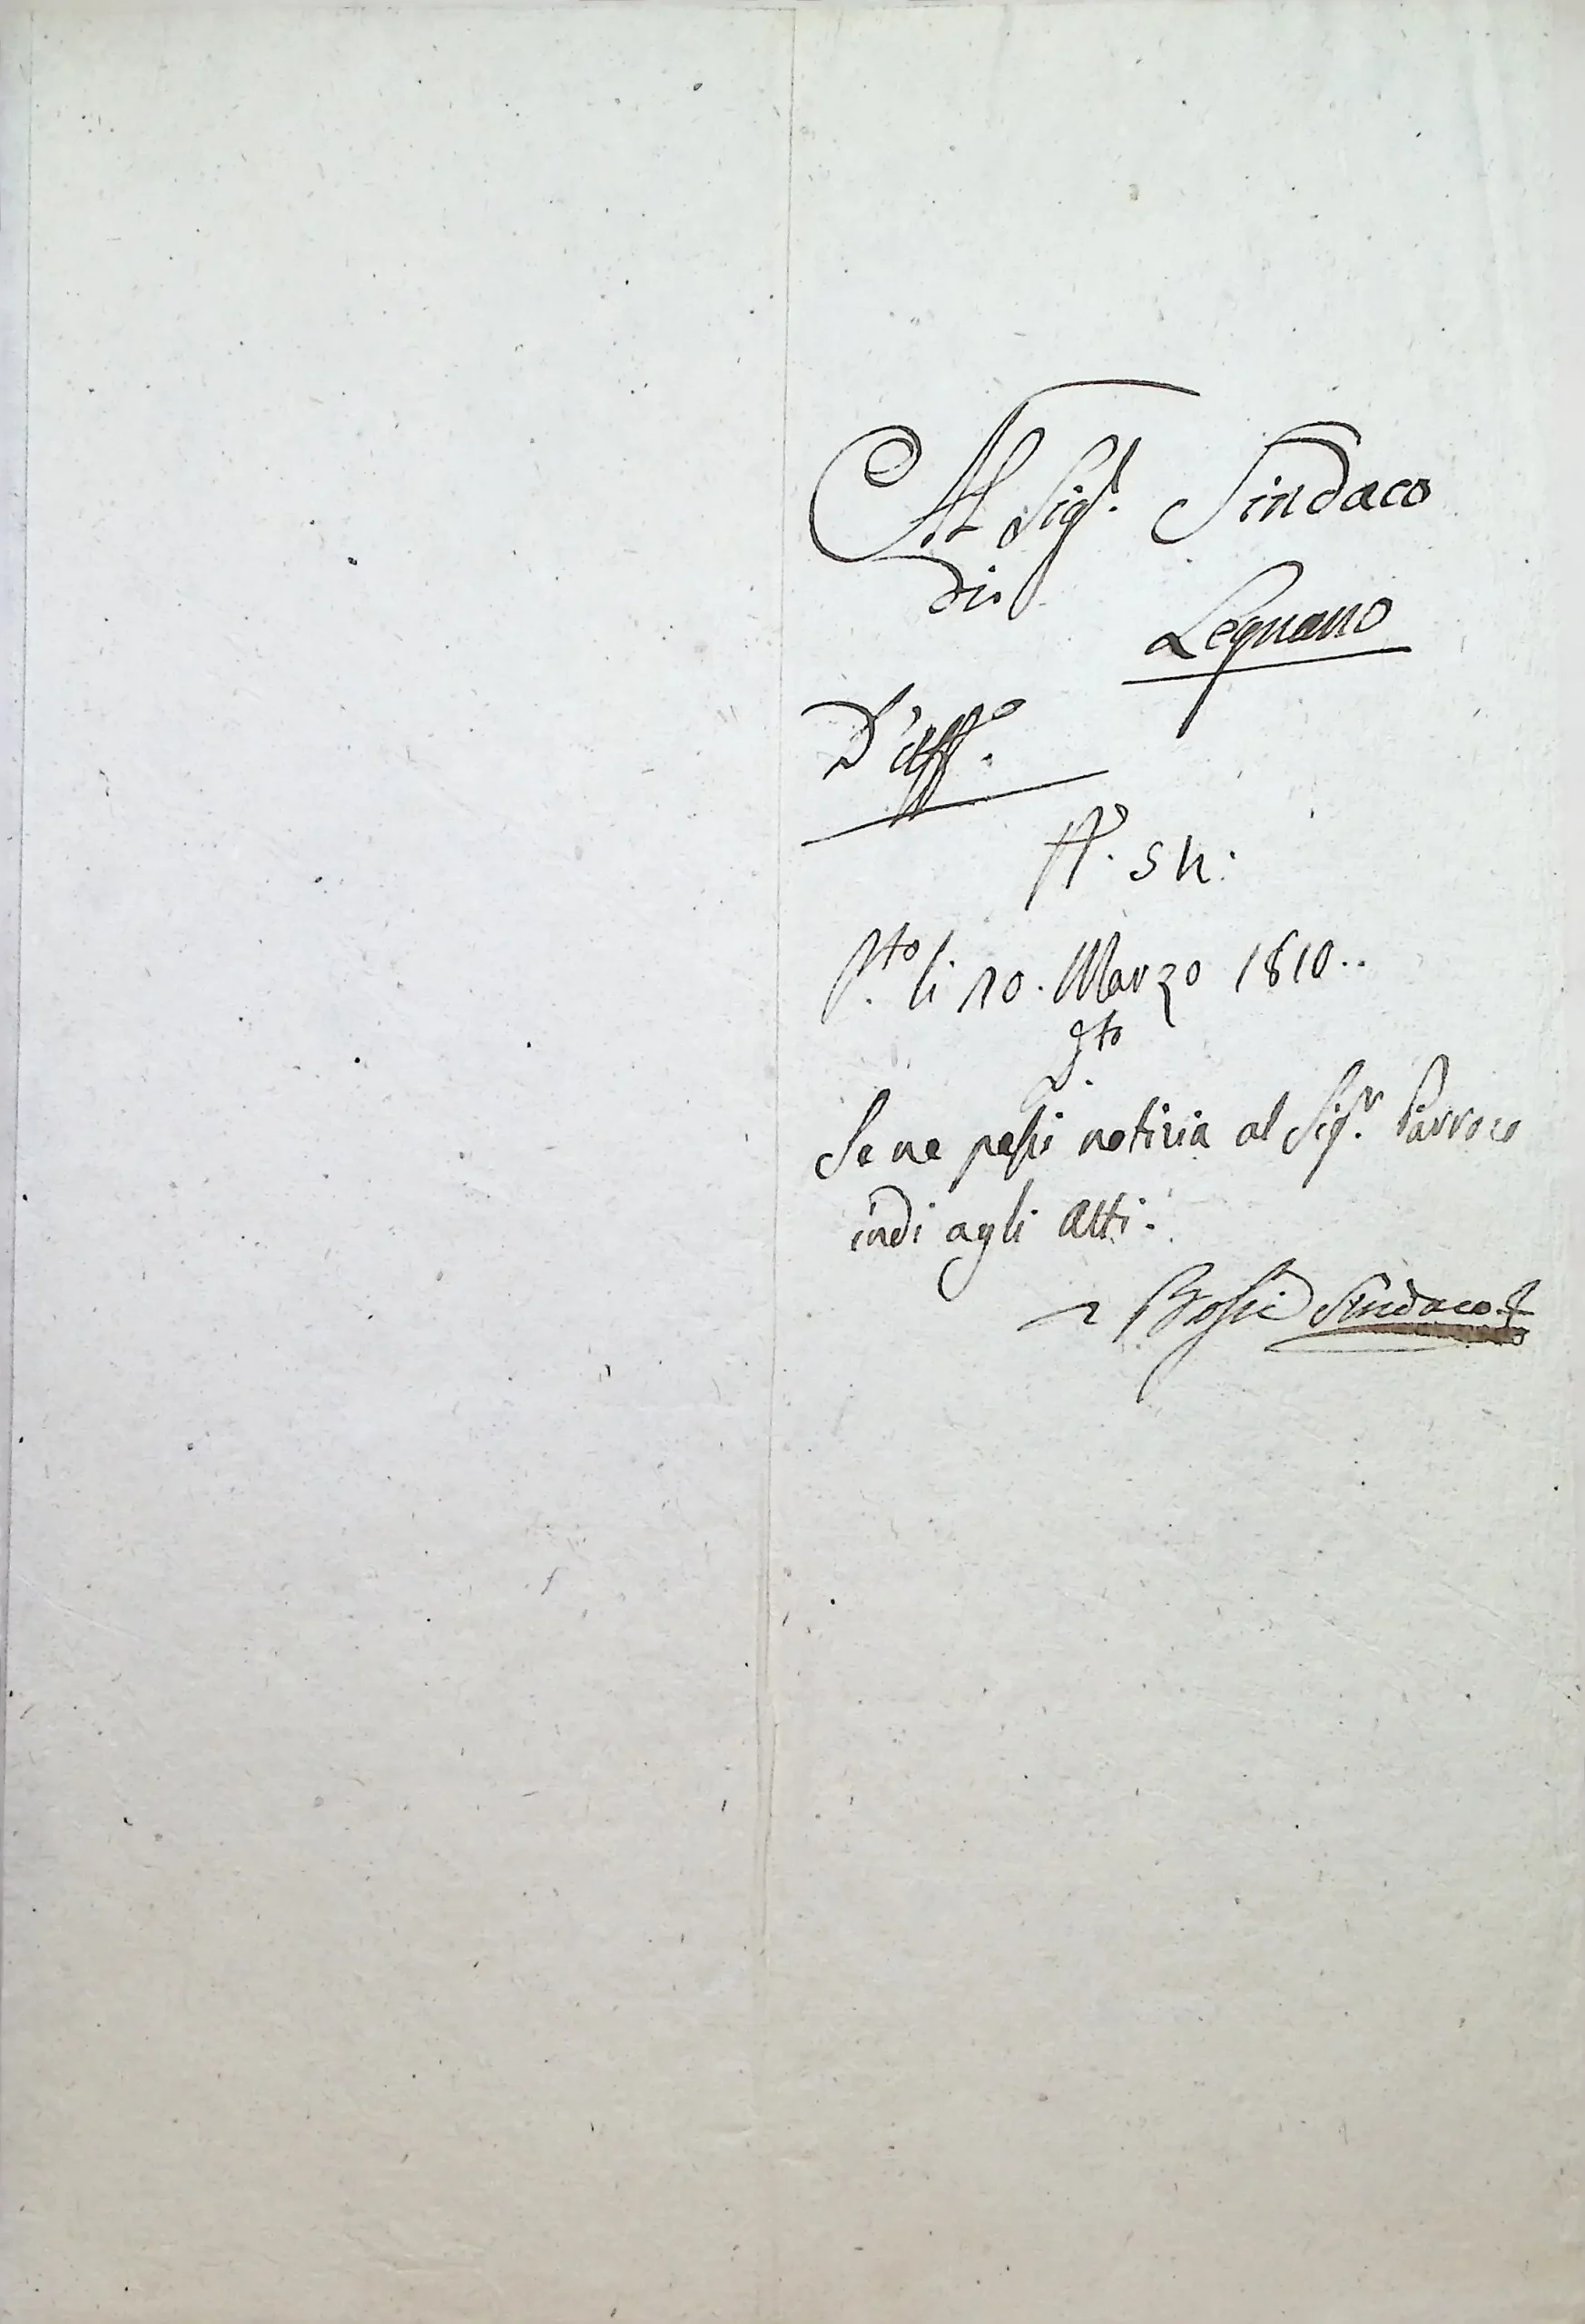 Al Sig.r Sindaco
di
Legnano
D'uff.o
N.o 54:
P.to li 10. Marzo 1810..
D.to
Se ne passi notizia al Sig.r Parroco
indi agli Atti.
Bossi Sindaco